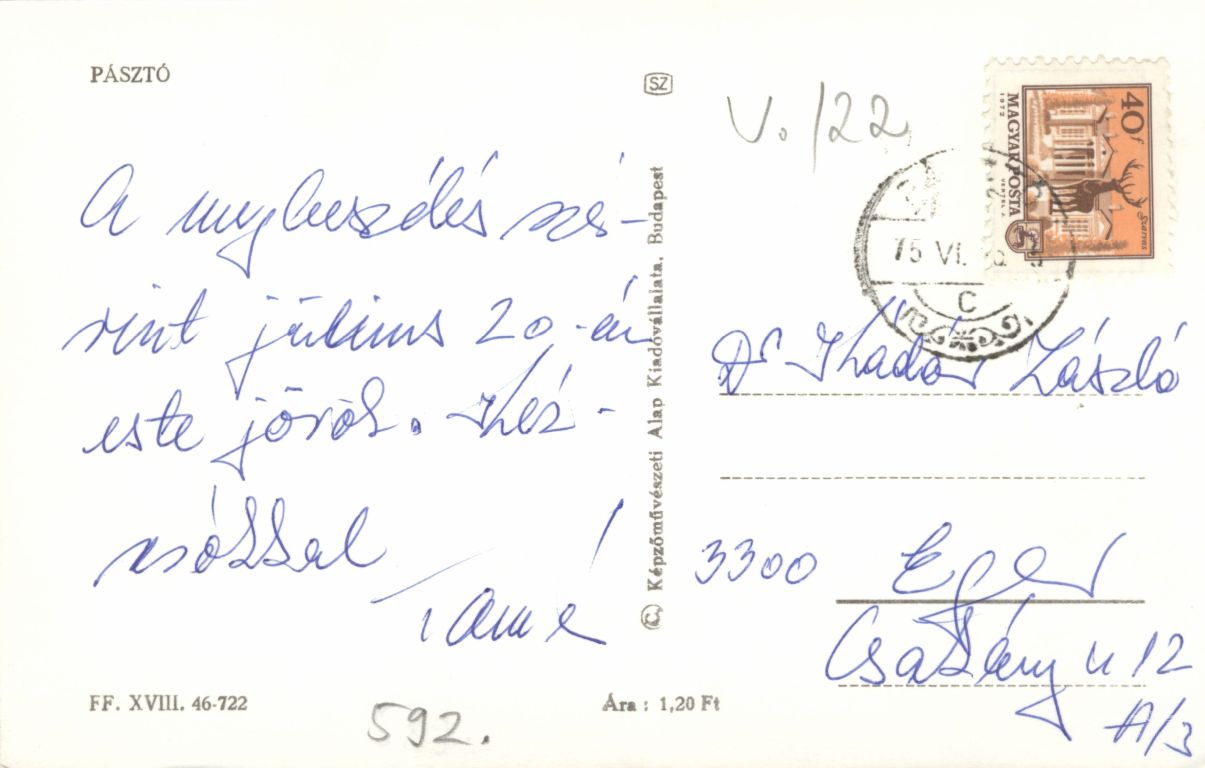 PÁSZTÓ
SZ
V. /22
40f
MAGYAR POSTA
1972
VERTEL J.
Szarvas
75 VI.
C
A megbeszélés sze-
rint július 20-án
este jövök. Kéz-
csókkal
Dr Kádár László
3300 Eger
Csákány u 12
A/3
© Képzőművészeti Alap Kiadóvállalata, Budapest
FF. XVIII. 46-722
Ára : 1,20 Ft
592.